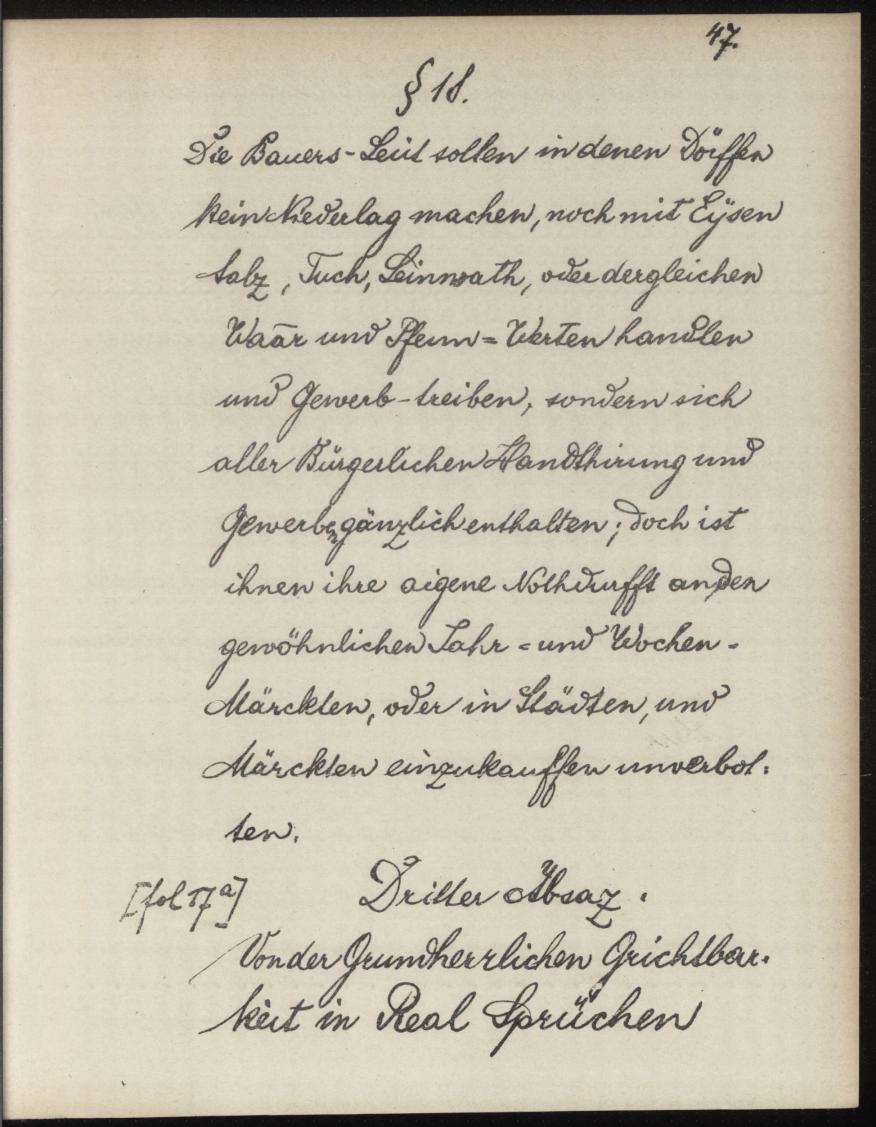 47.
§ 18.
Die Bauers-Leüt sollen in denen Dörffen
kein Niederlag machen, noch mit Eÿsen
Salz, Tuch, Leinwath, oder dergleichen
Waār und Pfenn=Werten handlen
und Gewerb-treiben, sondern sich
aller Bürgerlichen Handthirung und
Gewerben gänzlich enthalten; doch ist
ihnen ihre aigene Nothdurfft an den
gewöhnlichen Jahr= und Wochen-
Märckten, oder in Städten, und
Märckten einzukauffen unverbot:
ten.
[fol 17a] Dritter Absaz.
Von der Grundherrlichen Grichtbar:
keit in Real Sprüchen